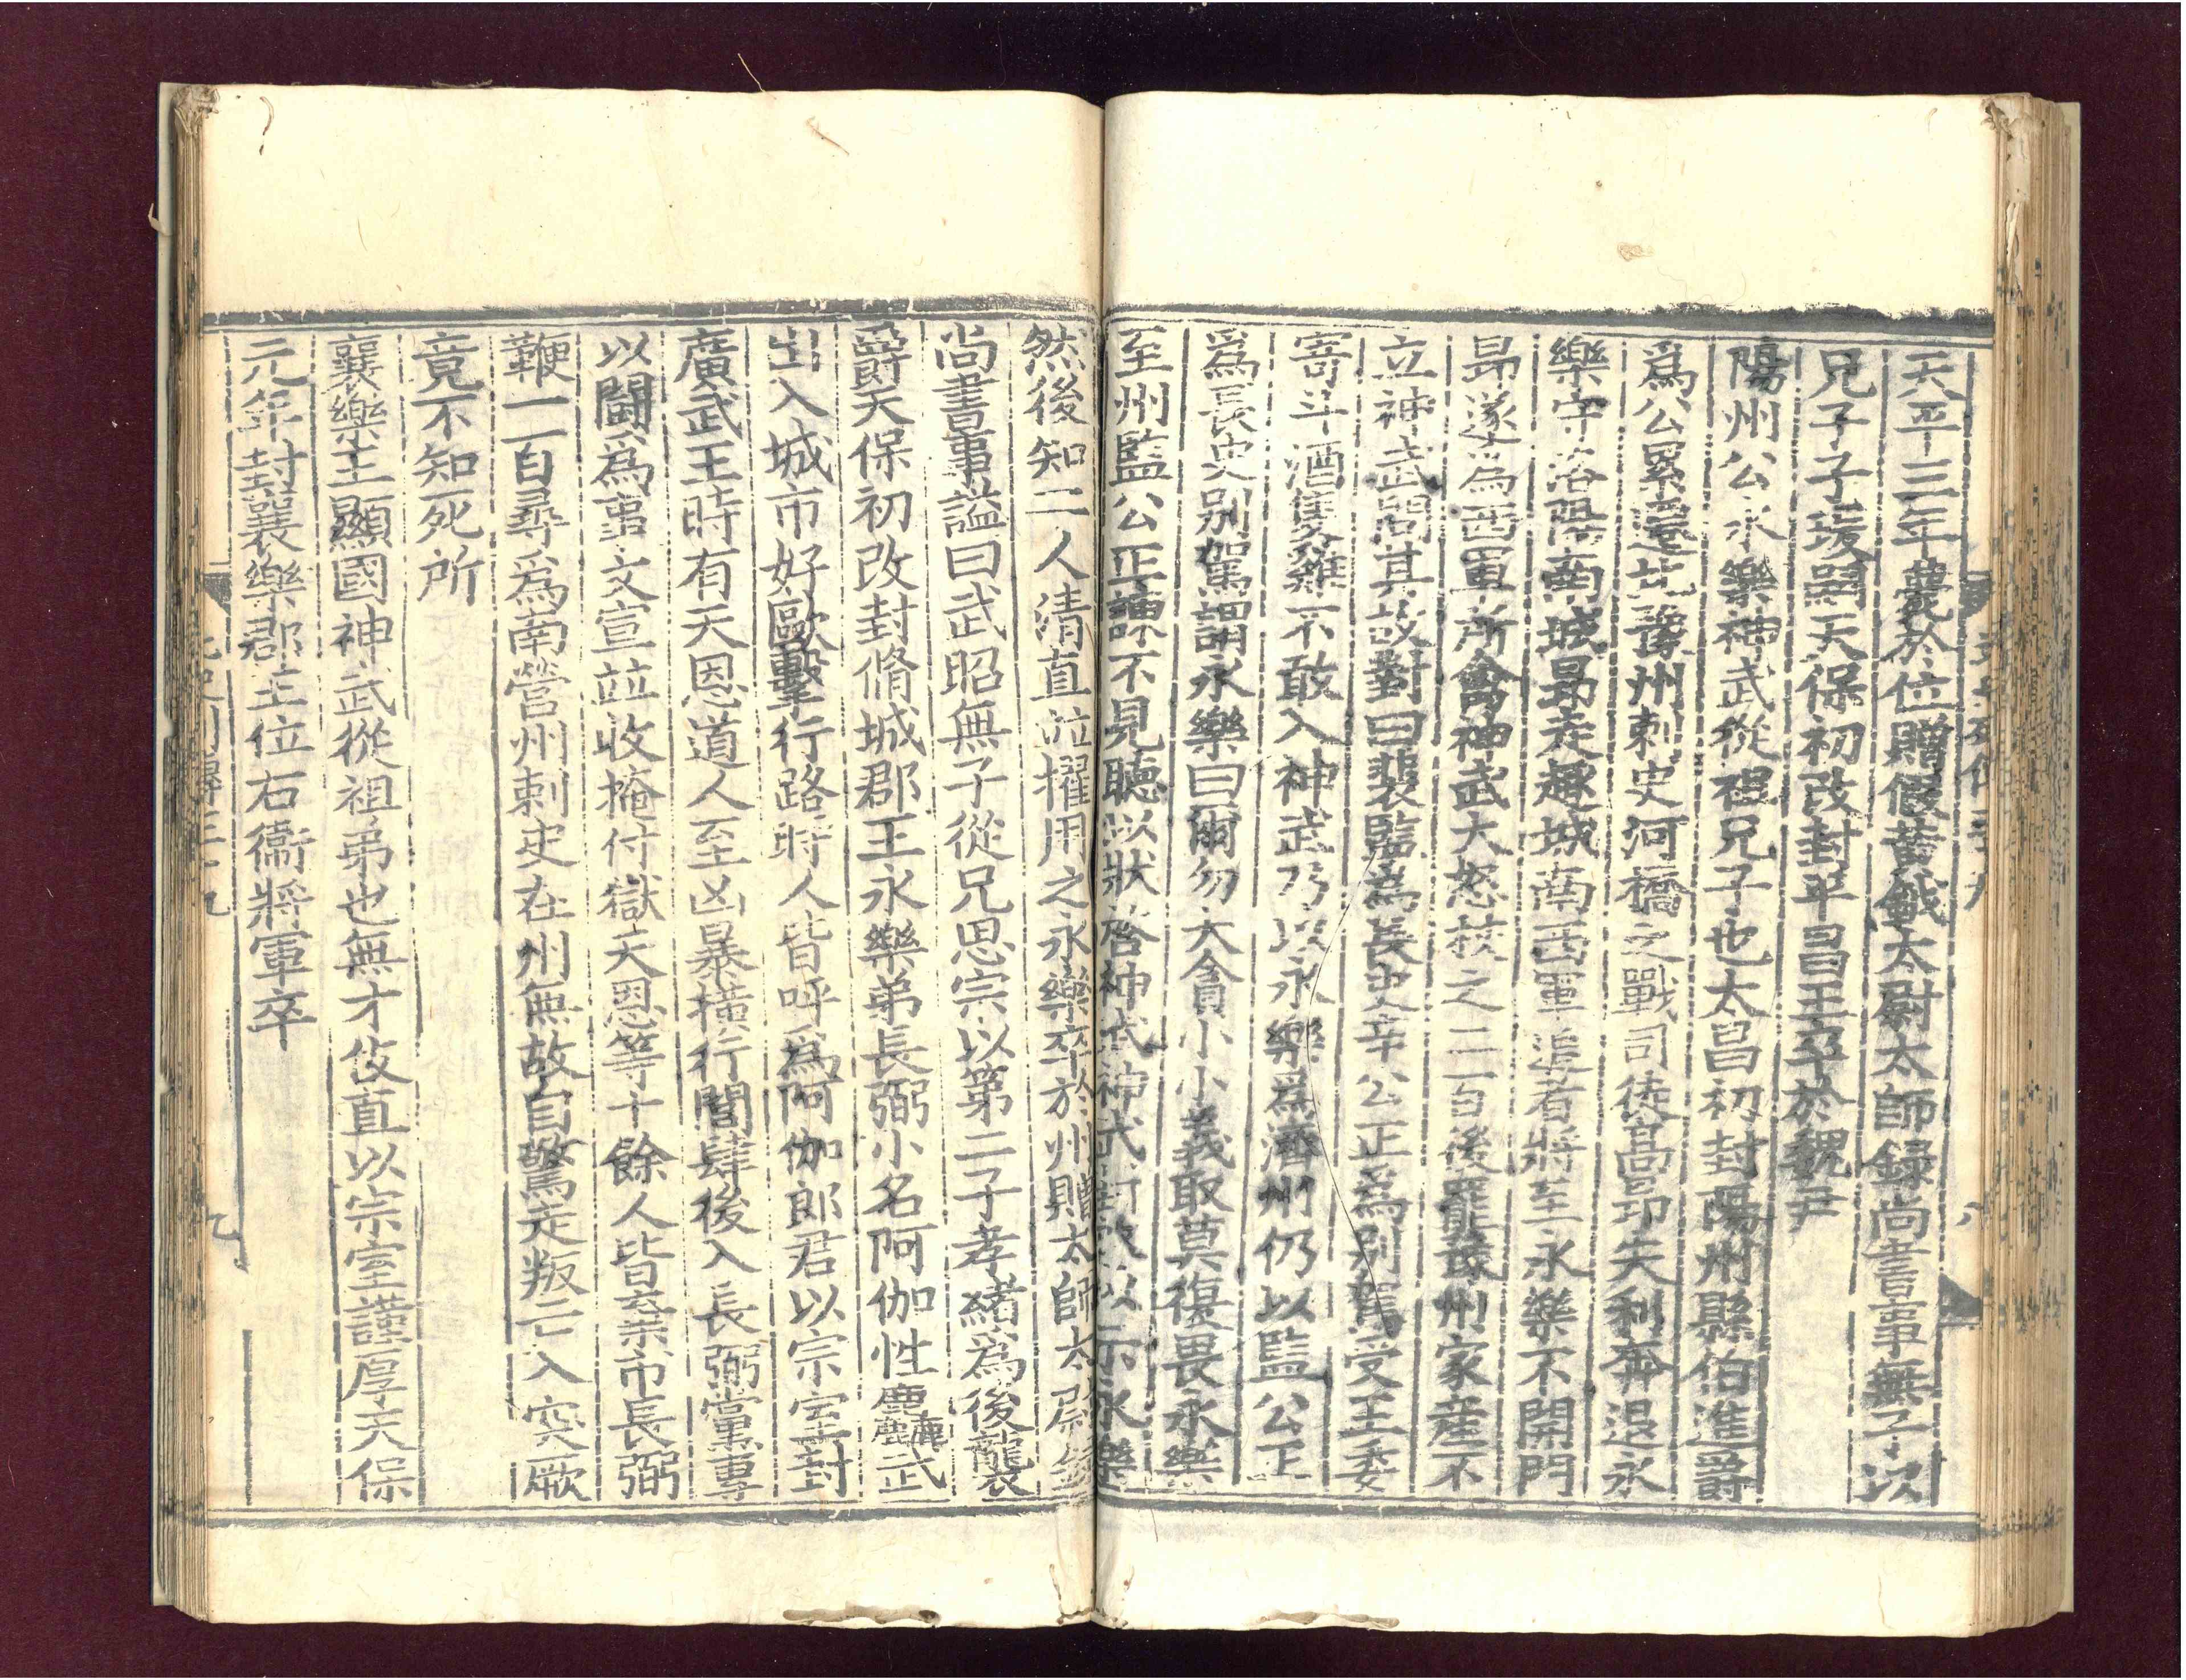 天平三年薨於位贈假黃鉞太尉太師録尚書事無子以
兄子子瑗嗣天保初改封平昌王卒於魏尹
陽州公永樂神武從祖兄子也太昌初封陽州縣伯進爵
爲公累遷北豫州刺史河橋之戰司徒高昂失利奔退永
樂守洛陽南城昂走趣城南西軍追者將至永樂不開門
昂遂爲西軍所禽神武大怒杖之二百後罷豫州家産不
立神武問其故對曰裴監爲長史辛公正爲別駕受王委
寄斗酒隻雞不敢入神武乃以永樂爲濟州仍以監公正
爲長史別駕謂永樂曰爾勿大貪小小義取莫復畏永樂
至州監公正諫不見聽以狀啓神武神武封啟以示永樂
然後知二人清直並擢用之永樂卒於州贈太師太尉録
尚書事謚曰武昭無子從兄思宗以第二子孝緒爲後襲
爵天保初改封脩城郡王永樂弟長弼小名阿伽性麤武
出入城市好歐擊行路時人皆呼爲阿伽郎君以宗室封
廣武王時有天恩道人至凶暴橫行閭肆後入長弼黨專
以鬪爲事文宣並收掩付獄天恩等十餘人皆棄市長弼
鞭一百尋爲南營州刺史在州無故自驚走叛亡入突厥
竟不知死所
襄樂王顯國神武從祖弟也無才伎直以宗室謹厚天保
元年封襄樂郡王位右衞將軍卒
北史列傳三十九
九